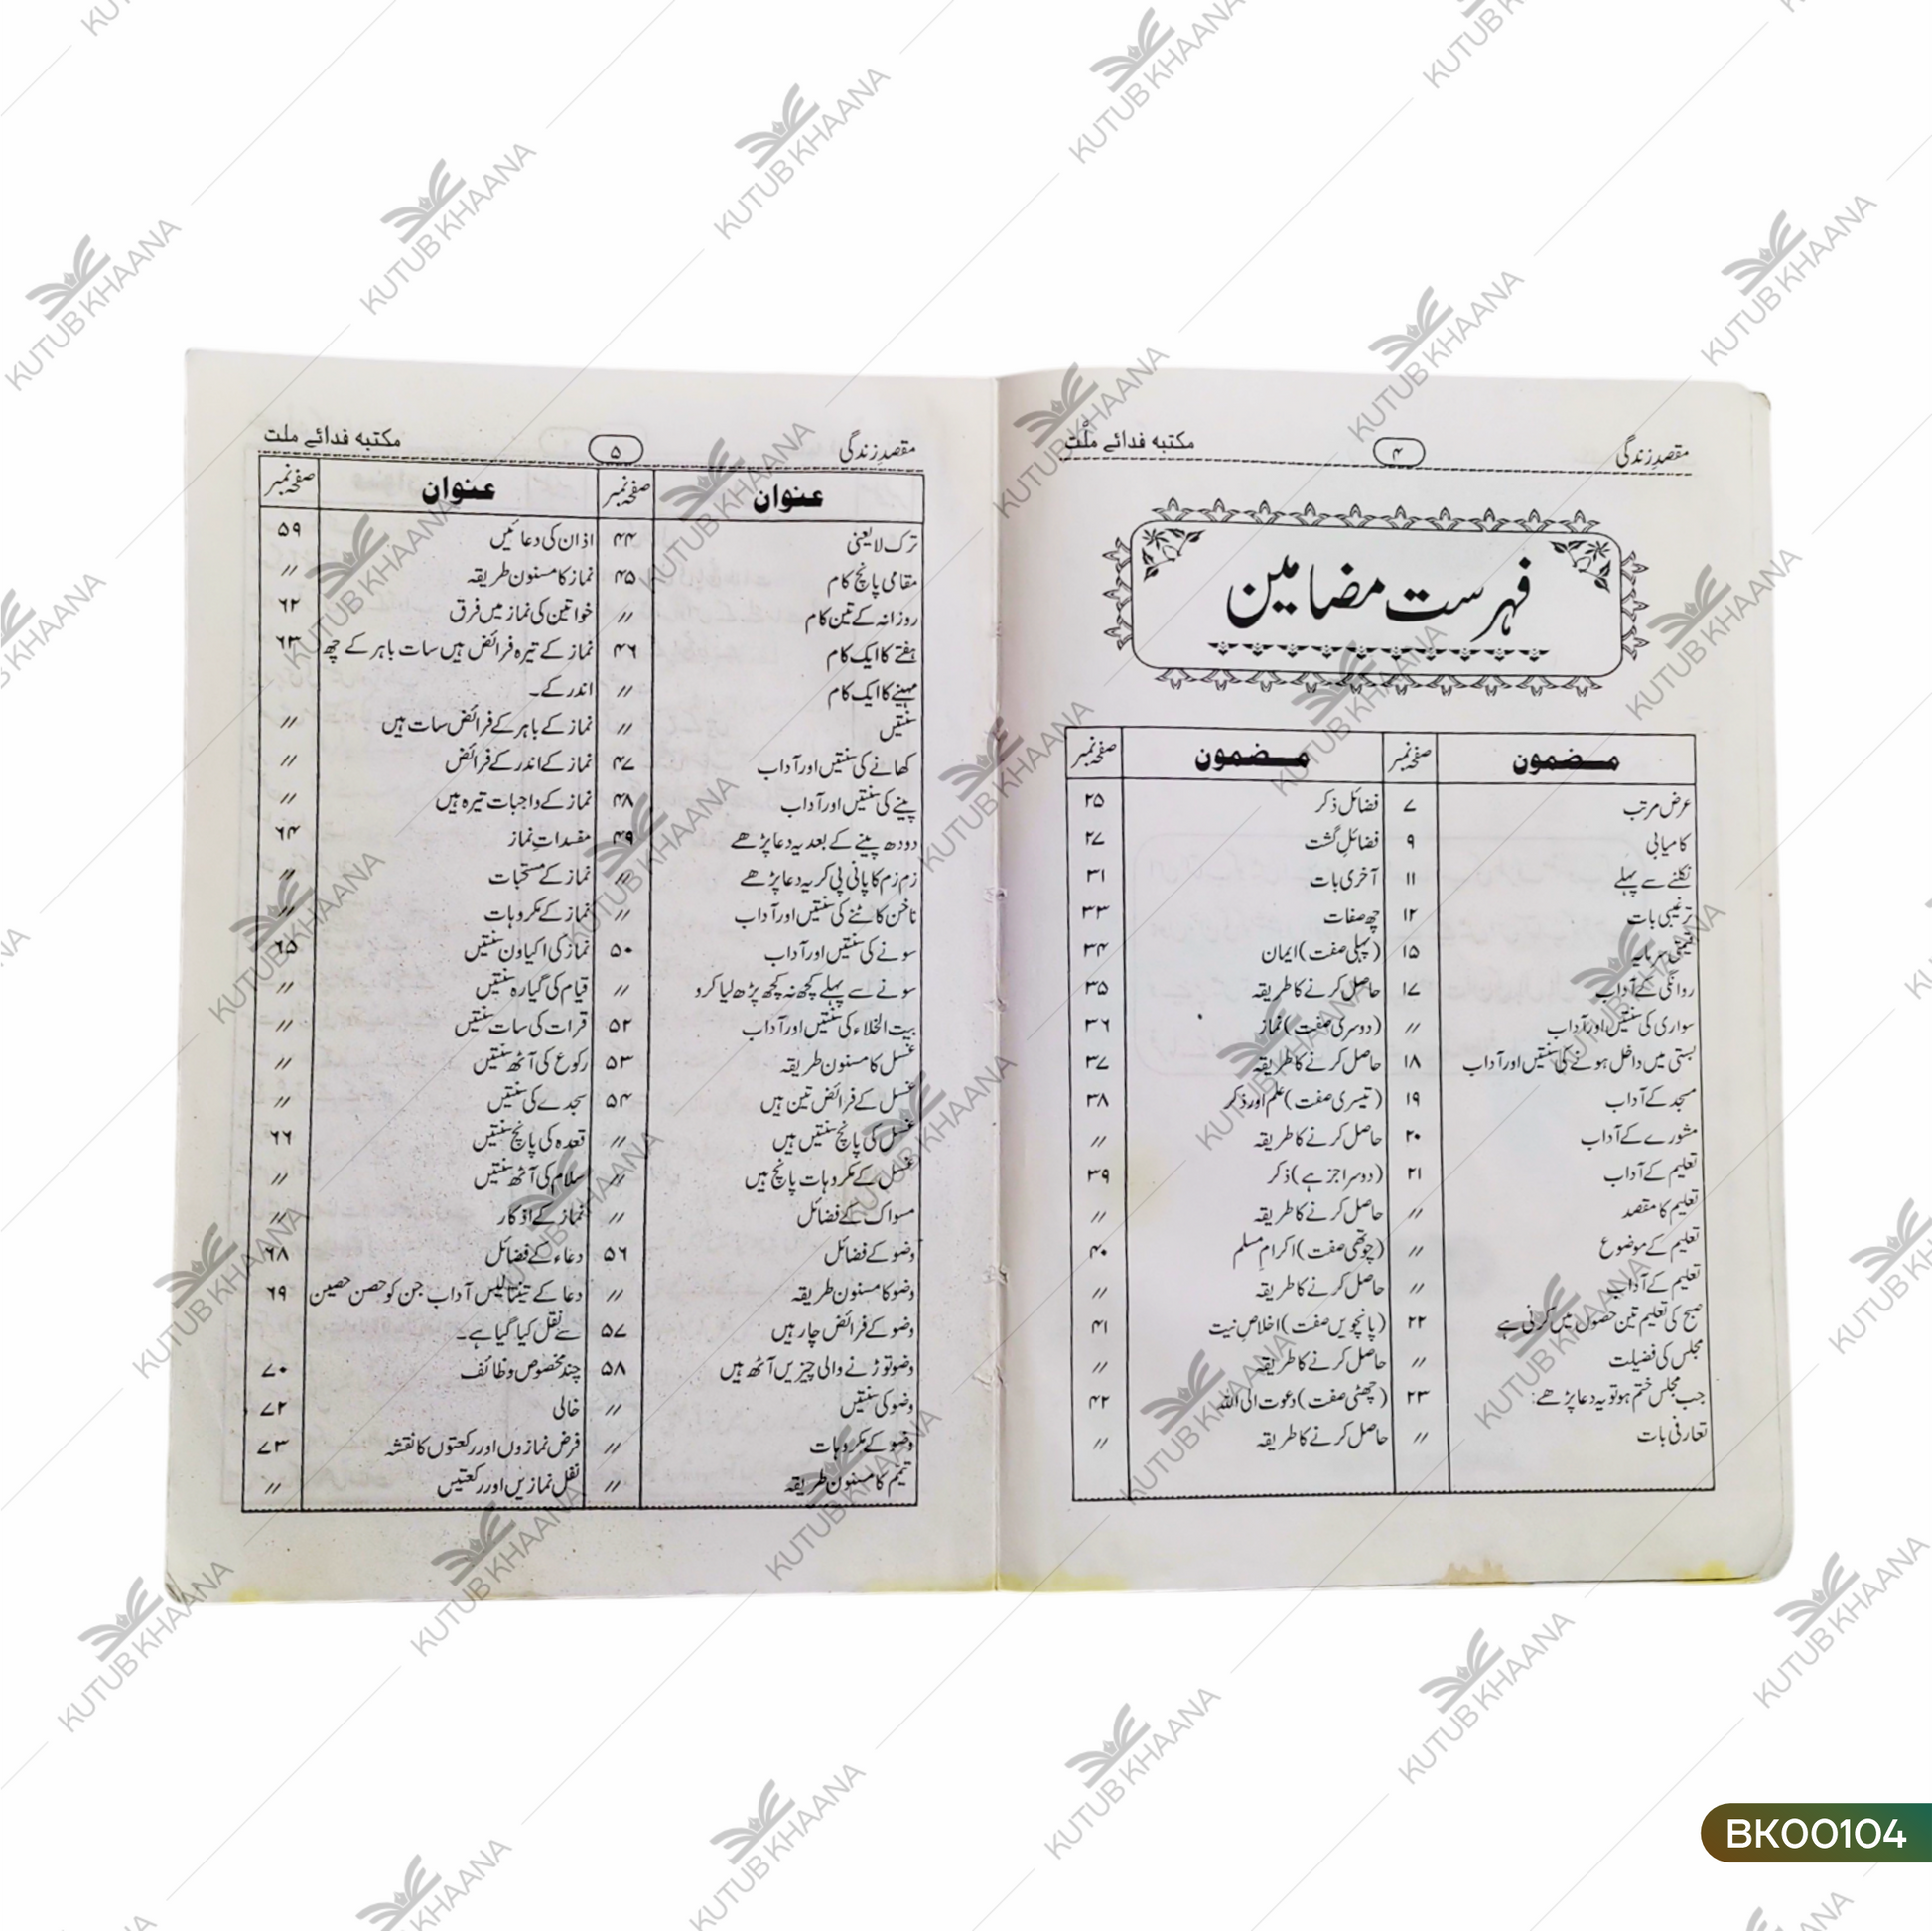 مقصدِ زندگی ۴ مکتبہ فدائے ملّت
فہرست مضامین
مضمون صفحہ نمبر مضمون صفحہ نمبر
عرض مرتب ۷ فضائل ذکر ۲۵
کامیابی ۹ فضائلِ گشت ۲۷
نکلنے سے پہلے ۱۱ آخری بات ۳۱
ترغیبی بات ۱۲ چھ صفات ۳۳
قیمتی سرمایہ ۱۵ (پہلی صفت) ایمان ۳۴
روانگی کے آداب ۱۷ حاصل کرنے کا طریقہ ۳۵
سواری کی سنتیں اور آداب // (دوسری صفت) نماز ۳۶
بستی میں داخل ہونے کی سنتیں اور آداب ۱۸ حاصل کرنے کا طریقہ ۳۷
مسجد کے آداب ۱۹ (تیسری صفت) علم اور ذکر ۳۸
مشورے کے آداب ۲۰ حاصل کرنے کا طریقہ //
تعلیم کے آداب ۲۱ (دوسرا جز ہے) ذکر ۳۹
تعلیم کا مقصد // حاصل کرنے کا طریقہ //
تعلیم کے موضوع // (چوتھی صفت) اکرام مسلم ۴۰
تعلیم کے آداب // حاصل کرنے کا طریقہ //
صبح کی تعلیم تین حصوں میں کرنی ہے ۲۲ (پانچویں صفت) اخلاصِ نیت ۴۱
مجلس کی فضیلت // حاصل کرنے کا طریقہ //
جب مجلس ختم ہو تو یہ دعا پڑھے: ۲۳ (چھٹی صفت) دعوت الی اللہ ۴۲
تعارفی بات // حاصل کرنے کا طریقہ //
مقصدِ زندگی ۵ مکتبہ فدائے ملت
عنوان صفحہ نمبر عنوان صفحہ نمبر
ترک لا یعنی ۴۴ اذان کی دعائیں ۵۹
مقامی پانچ کام ۴۵ نماز کا مسنون طریقہ //
روزانہ کے تین کام // خواتین کی نماز میں فرق ۶۲
ہفتے کا ایک کام ۴۶ نماز کے تیرہ فرائض ہیں سات باہر کے چھ ۶۳
مہینے کا ایک کام // اندر کے۔
سنتیں // نماز کے باہر کے فرائض سات ہیں //
کھانے کی سنتیں اور آداب ۴۷ نماز کے اندر کے فرائض //
پینے کی سنتیں اور آداب ۴۸ نماز کے واجبات تیرہ ہیں //
دودھ پینے کے بعد یہ دعا پڑھے ۴۹ مفسداتِ نماز ۶۴
زم زم کا پانی پی کر یہ دعا پڑھے // نماز کے مستحبات //
ناخن کاٹنے کی سنتیں اور آداب // نماز کے مکروہات //
سونے کی سنتیں اور آداب ۵۰ نماز کی اکیاون سنتیں ۶۵
سونے سے پہلے کچھ نہ کچھ پڑھ لیا کرو // قیام کی گیارہ سنتیں //
بیت الخلاء کی سنتیں اور آداب ۵۲ قرات کی سات سنتیں //
غسل کا مسنون طریقہ ۵۳ رکوع کی آٹھ سنتیں //
غسل کے فرائض تین ہیں ۵۴ سجدے کی سنتیں //
غسل کی پانچ سنتیں ہیں // قعدہ کی پانچ سنتیں ۶۶
غسل کے مکروہات پانچ ہیں // سلام کی آٹھ سنتیں //
مسواک کے فضائل // نماز کے اذکار //
وضو کے فضائل ۵۶ دعاء کے فضائل ۶۸
وضو کا مسنون طریقہ // دعا کے تینتالیس آداب جن کو حصن حصین ۶۹
وضو کے فرائض چار ہیں ۵۷ سے نقل کیا گیا ہے۔
وضو توڑنے والی چیزیں آٹھ ہیں ۵۸ چند مخصوص وظائف ۷۰
وضو کی سنتیں // خالی ۷۲
وضو کے مکروہات // فرض نمازوں اور رکعتوں کا نقشہ ۷۳
تیمّم کا مسنون طریقہ // نفل نمازیں اور رکعتیں //
KUTUB KHAANA
BK00104